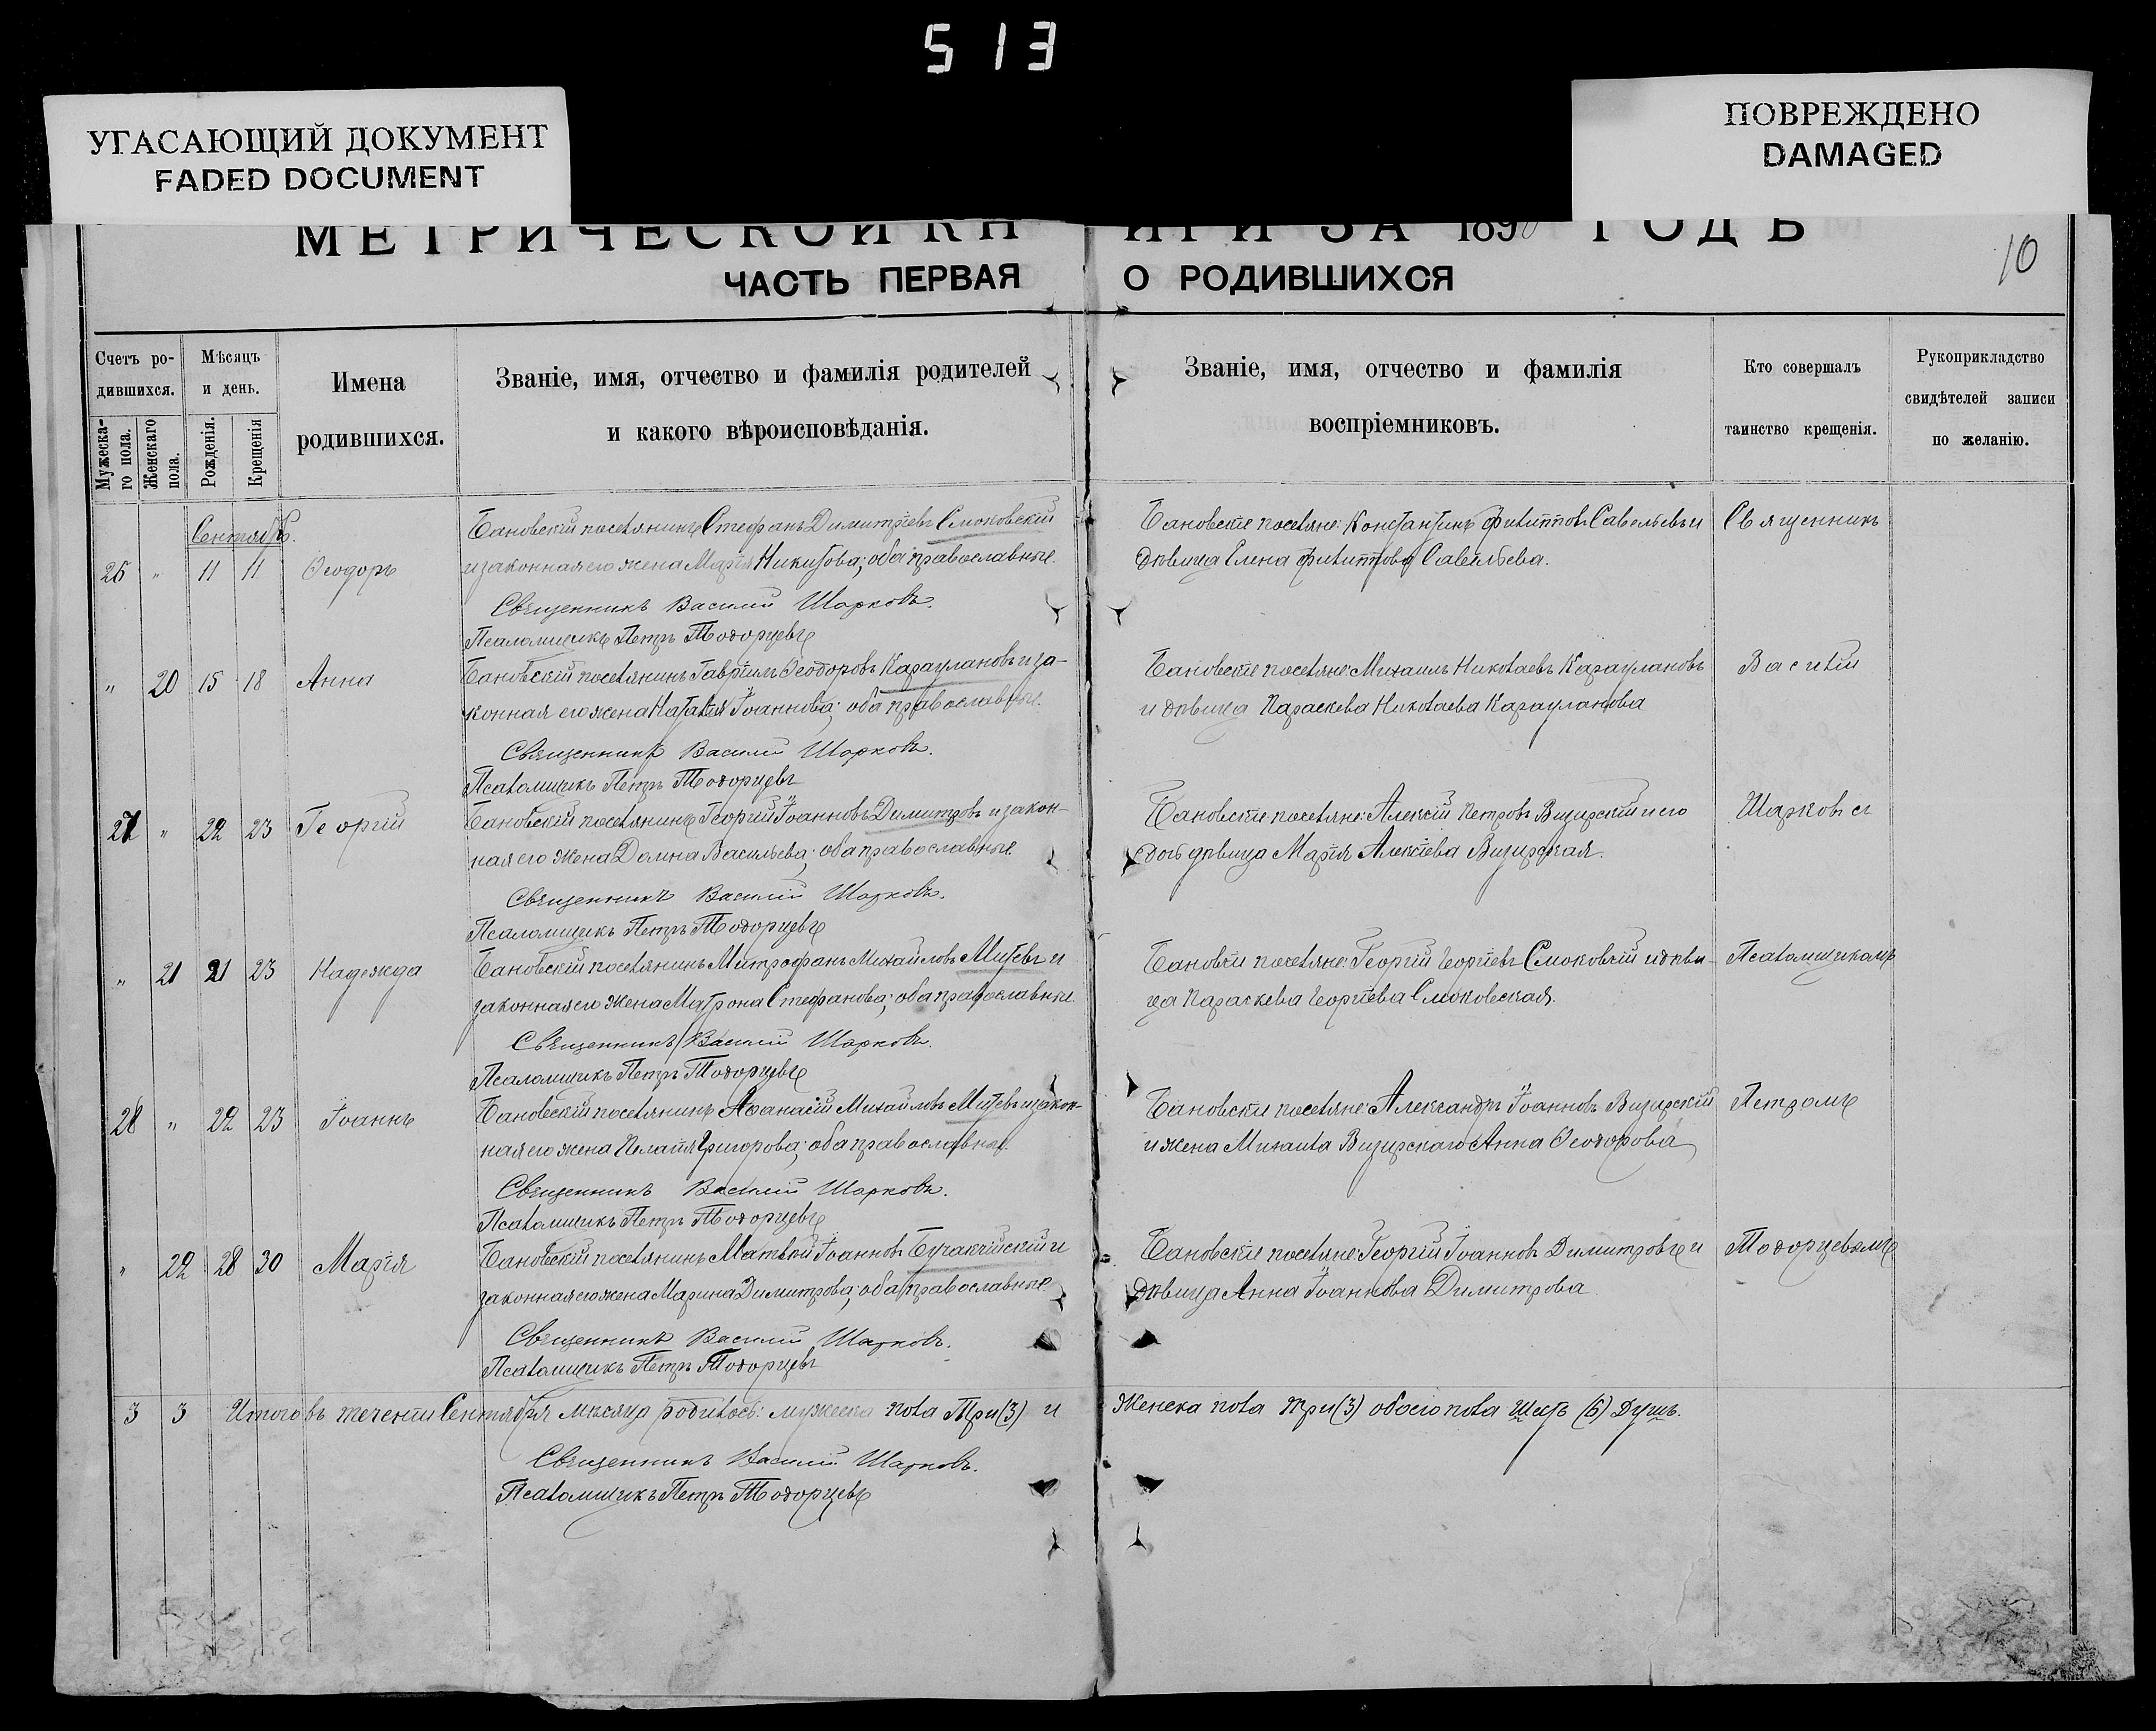 513
УГАСАЮЩИЙ ДОКУМЕНТ
FADED DOCUMENT
ПОВРЕЖДЕНО
DAMAGED
МЕТРИЧЕСКОЙ КНИГИ ЗА 189 ГОДЪ
10
ЧАСТЬ ПЕРВАЯ О РОДИВШИХСЯ
Счетъ ро-
дившихся.
Мужеска-
го пола.
Женскаго
пола.
Мѣсяцъ
и день.
Рожденія.
Крещенія
Имена
родившихся.
Званіе, имя, отчество и фамилія родителей
и какого вѣроисповѣданія.
Званіе, имя, отчество и фамилія
воспріемниковъ.
Кто совершалъ
таинство крещенія.
Рукоприкладство
свидѣтелей записи
по желанію.
Сентябрь.
Бановскій поселянинъ Стефанъ Димитріевъ Смоковскій
26 " 11 11 Ѳеодоръ
и законная его жена Марія Никитова; оба православные.
Священникъ Василій Шарковъ.
Псаломщикъ Петръ Тодорцевъ
Бановскіе поселяне: Константинъ Филипповъ Савельевъ и
дѣвица Елена Филиппова Савельева.
Священникъ
" 20 15 18 Анна
Бановскій поселянинъ Гавріилъ Ѳеодоровъ Карауловъ и за-
конная его жена Наталія Іоаннова; оба православные.
Священникъ Василій Шарковъ.
Псаломщикъ Петръ Тодорцевъ
Бановскіе поселяне: Михаилъ Николаевъ Карауланов
и дѣвица Параскева Николаева Карауланова
Василій
27 " 22 23 Георгій
Бановскій поселянинъ Георгій Іоанновъ Димитровъ и закон-
ная его жена Домна Васильева; оба православные.
Священникъ Василій Шарковъ.
Псаломщикъ Петръ Тодорцевъ
Бановскіе поселяне: Алексій Петровъ Визирскій и его
дочь дѣвица Марія Алексіева Визирская.
Шарковъ съ
" 21 21 23 Надежда
Бановскій поселянинъ Митрофанъ Михаиловъ Митевъ и
законная его жена Матрона Стефанова; оба православные.
Священникъ Василій Шарковъ.
Псаломщикъ Петръ Тодорцевъ
Бановскіи поселяне: Георгій Георгіевъ Смоковскій и дѣви-
ца Параскева Георгіева Смоковская.
Псаломщикомъ
28 " 22 23 Іоаннъ
Бановскій поселянинъ Аѳанасій Михаиловъ Митевъ и закон-
ная его жена Пелагія Григорова; оба православные.
Священникъ Василій Шарковъ.
Псаломщикъ Петръ Тодорцевъ
Бановскіе поселяне: Александръ Іоанновъ Визирскій
и жена Михаила Визирскаго Анна Ѳеодорова
Петромъ
" 22 28 30 Марія
Бановскій поселянинъ Матѳей Іоанновъ Бучакчійскій и
законная его жена Марина Димитрова; оба православные.
Священникъ Василій Шарковъ.
Псаломщикъ Петръ Тодорцевъ
Бановскіе поселяне: Георгій Іоанновъ Димитровъ и
дѣвица Анна Іоаннова Димитрова
Тодорцевымъ
3 3 Итого въ теченіи Сентября мѣсяца родилось: мужеска пола Три (3) и Женска пола три (3) обоего пола Шесть (6) Душъ.
Священникъ Василій Шарковъ.
Псаломщикъ Петръ Тодорцевъ